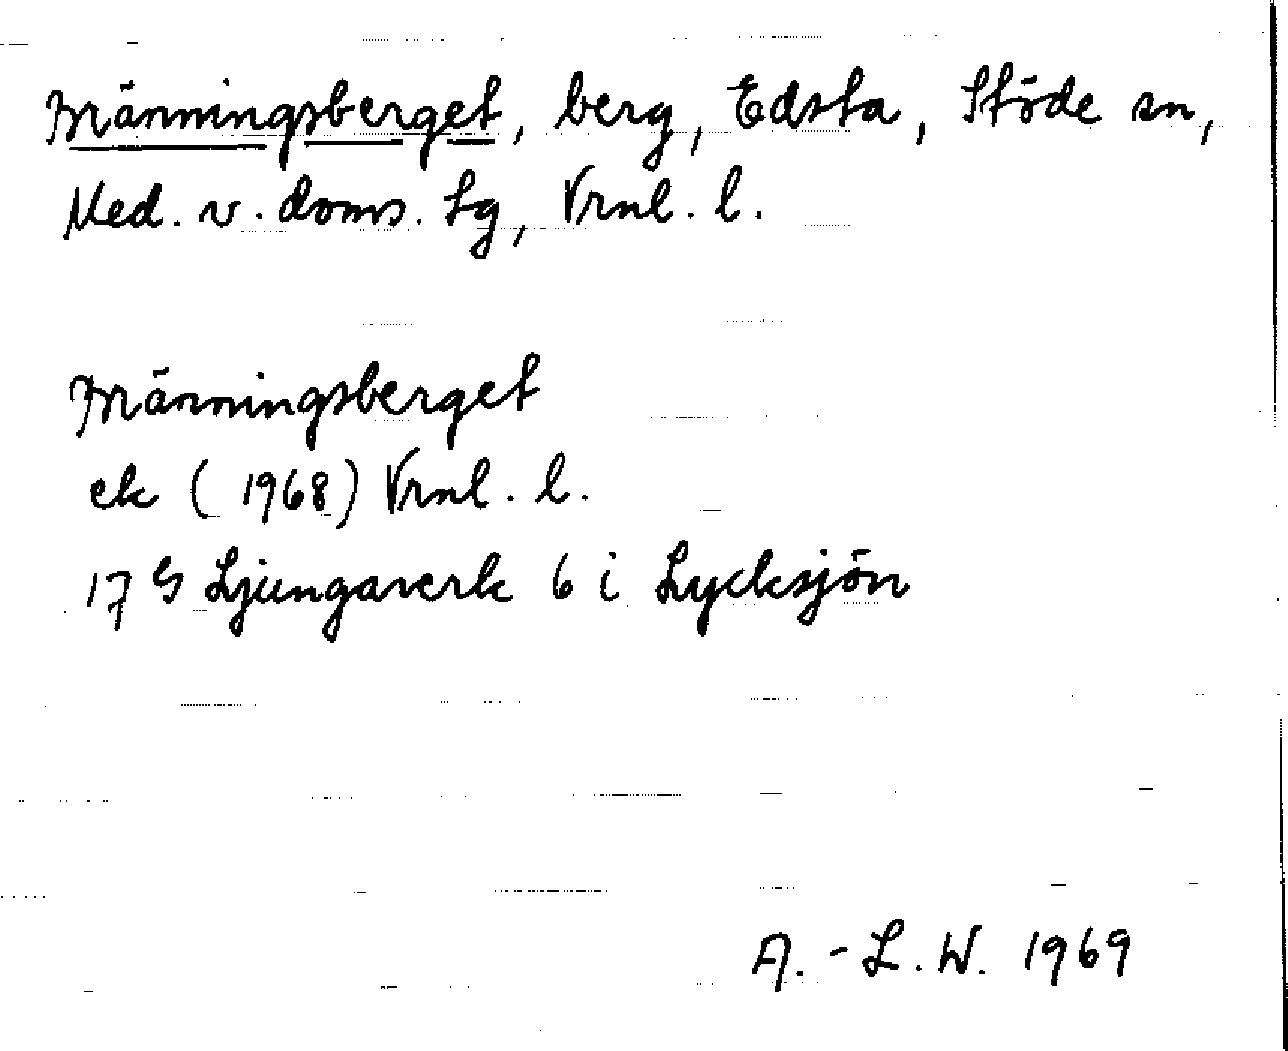 Männingsberget, berg, Edsta, Stöde sn,
Med. v. doms. tg, Vrnl. l.
Männingsberget
ek (1968) Vrnl. l.
17 G Ljungaverk 6 i Lycksjön
A.-L.W. 1969